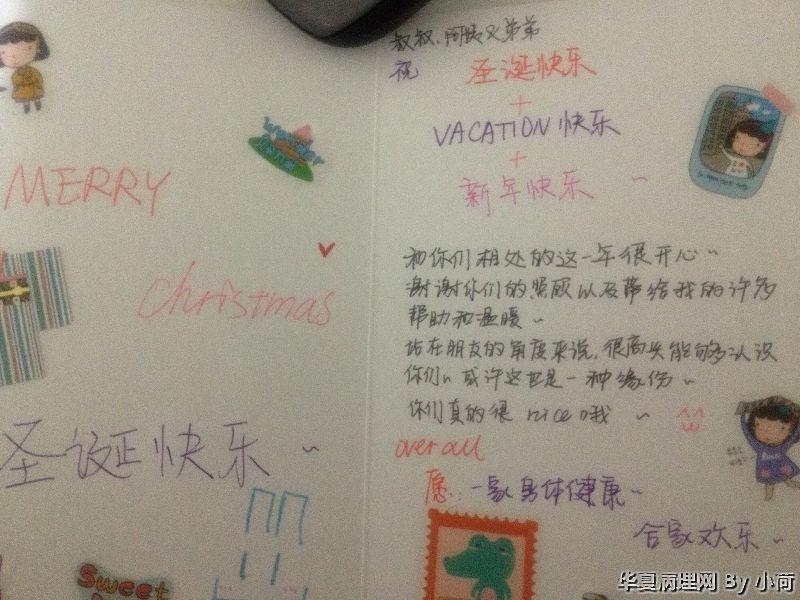 MERRY
Christmas
圣诞快乐~
Sweet
叔叔、阿姨、弟弟
祝 圣诞快乐
+
VACATION 快乐
+
新年快乐 ~
和你们相处的这一年很开心~
谢谢你们的照顾以及带给我的许多
帮助和温暖~
站在朋友的角度来说,很高兴能够认识
你们。或许这也是一种缘份~
你们真的很 nice 哦 ~ ^w^
over all
愿:一家身体健康~
合家欢乐~
华夏病理网 By 小荷